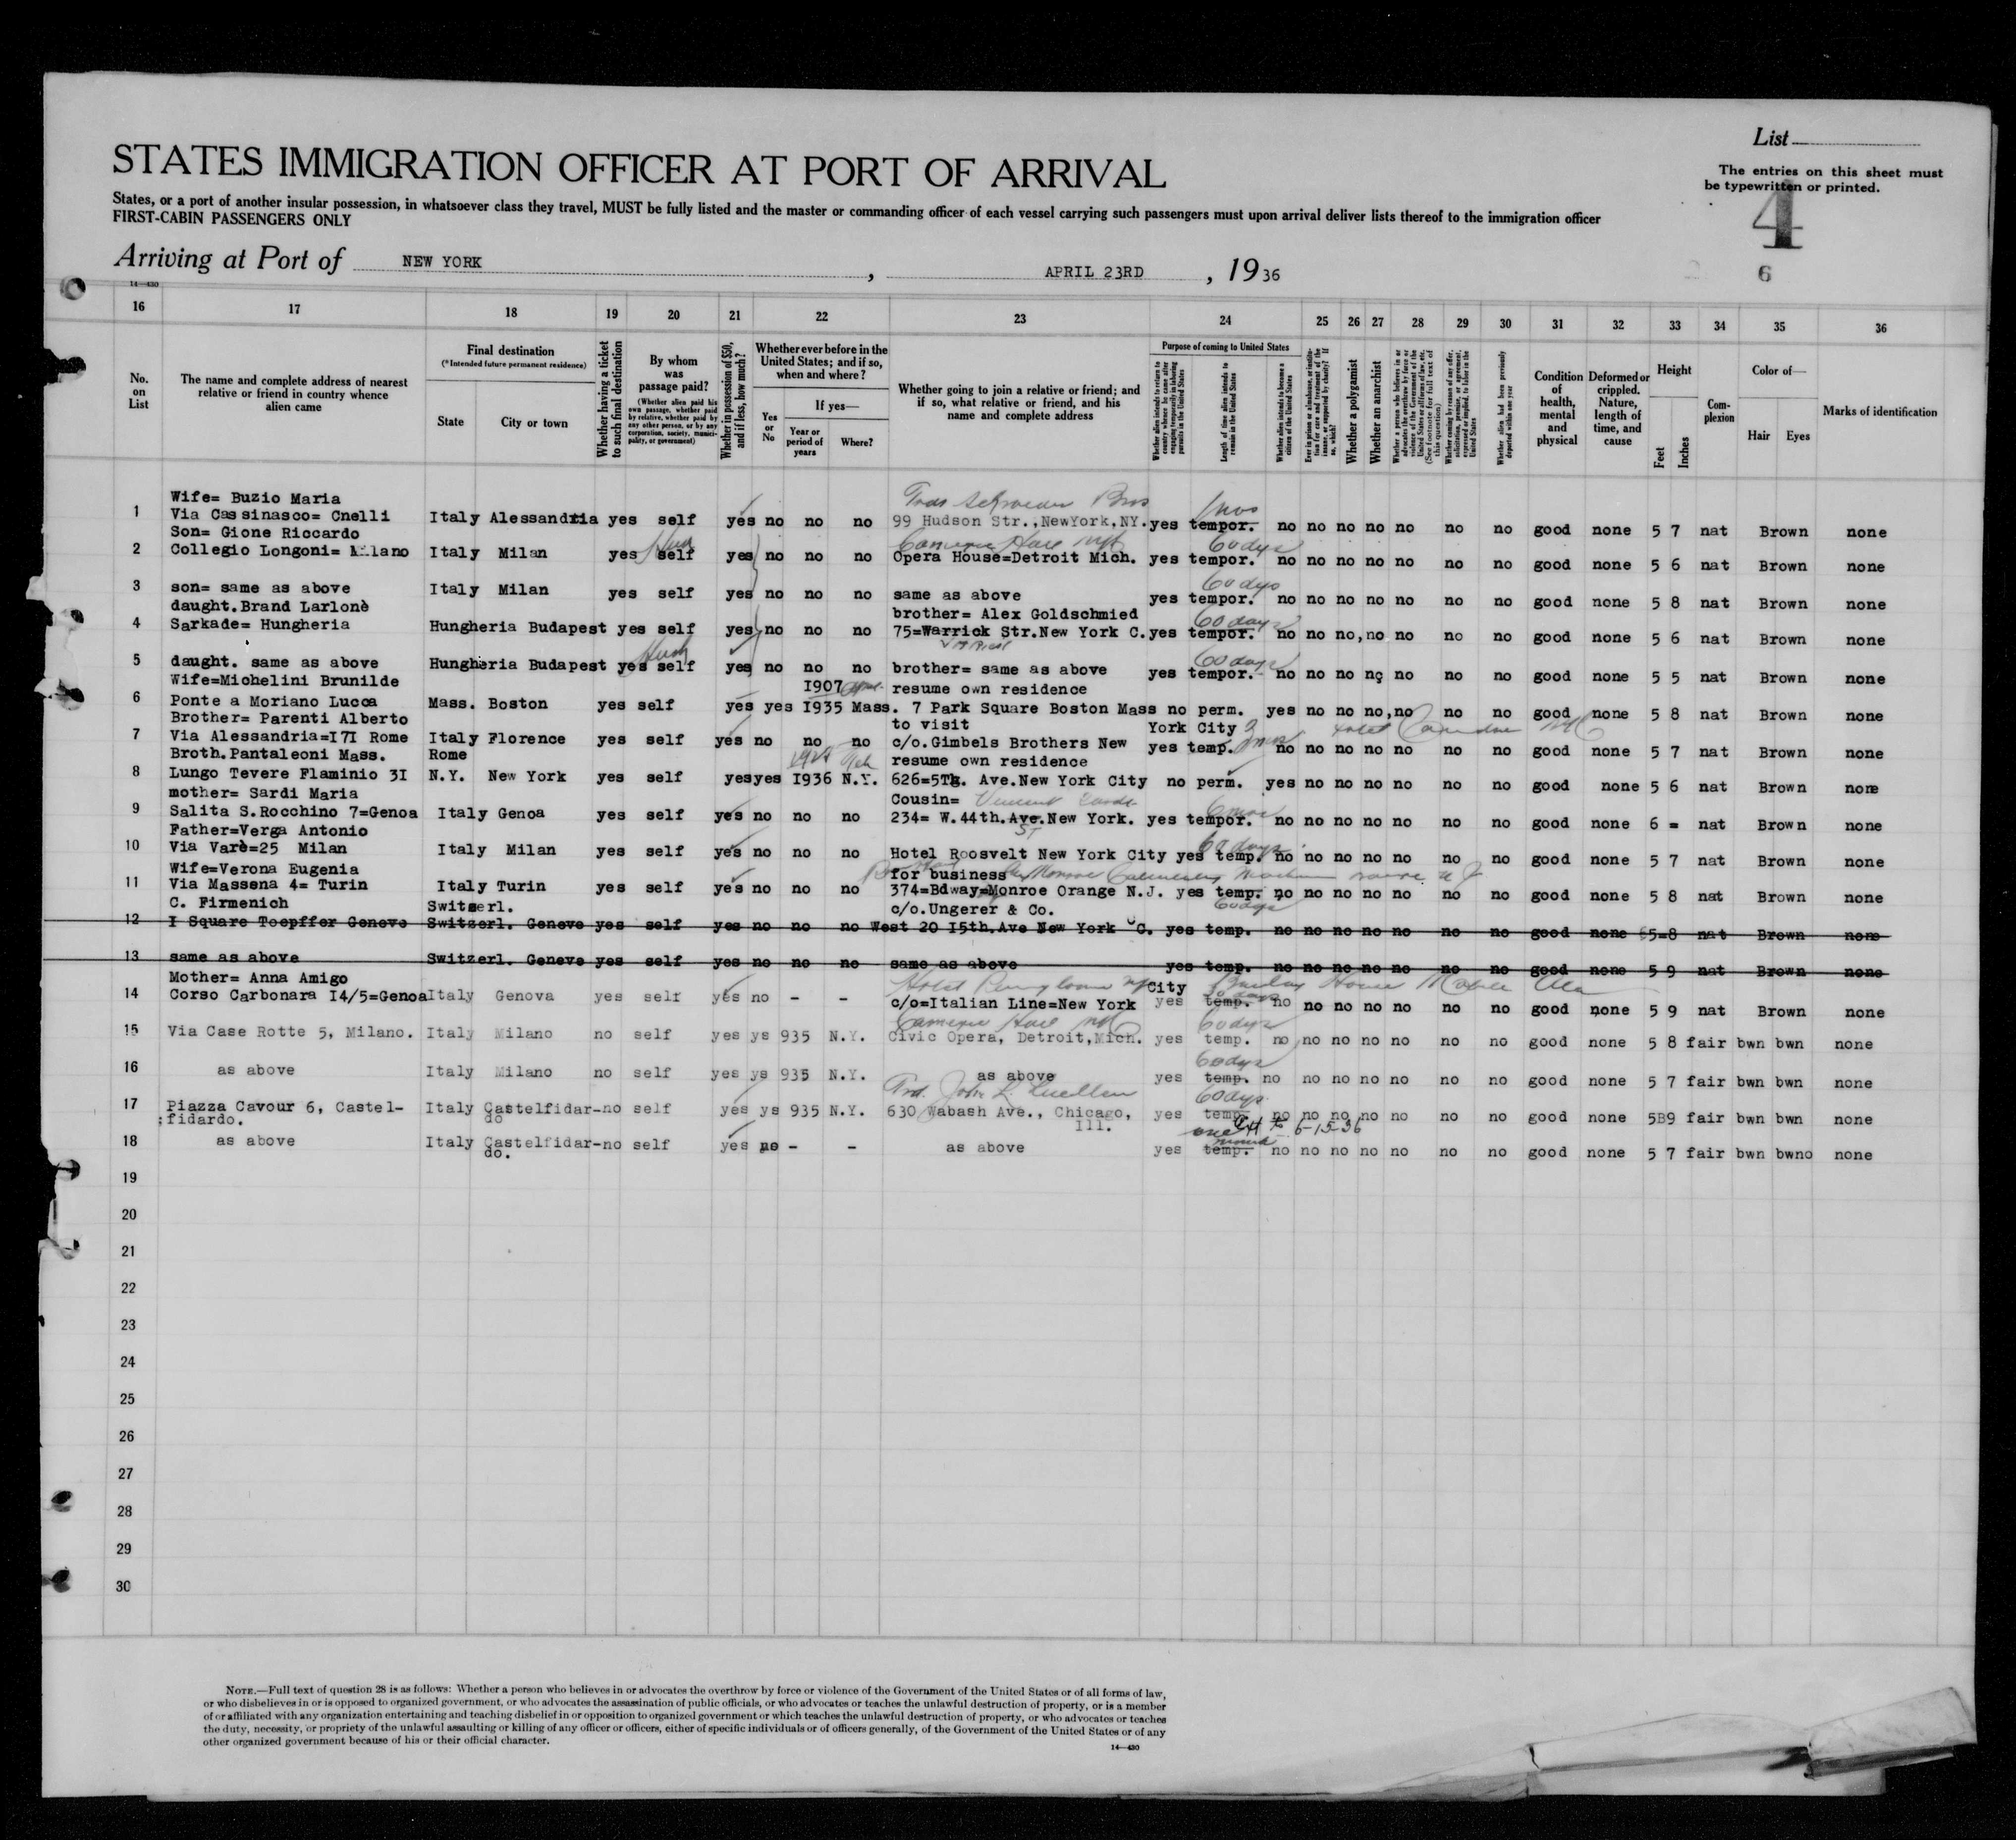 List
STATES IMMIGRATION OFFICER AT PORT OF ARRIVAL
The entries on this sheet must
be typewritten or printed.
States, or a port of another insular possession, in whatsoever class they travel, MUST be fully listed and the master or commanding officer of each vessel carrying such passengers must upon arrival deliver lists thereof to the immigration officer
FIRST-CABIN PASSENGERS ONLY
4
Arriving at Port of NEW YORK , APRIL 23RD , 1936
6
14—430
16 17 18 19 20 21 22 23 24 25 26 27 28 29 30 31 32 33 34 35 36
No. on List
The name and complete address of nearest relative or friend in country whence alien came
Final destination
(*Intended future permanent residence)
State City or town
Whether having a ticket to such final destination
By whom was passage paid?
(Whether alien paid his own passage, whether paid by relative, whether paid by any other person, or by any corporation, society, municipality, or government)
Whether in possession of $50, and if less, how much?
Whether ever before in the United States; and if so, when and where?
Yes or No
If yes—
Year or period of years
Where?
Whether going to join a relative or friend; and if so, what relative or friend, and his name and complete address
Purpose of coming to United States
Whether alien intends to return to country whence he came after engaging temporarily in laboring pursuits in the United States
Length of time alien intends to remain in the United States
Whether alien intends to become a citizen of the United States
Ever in prison or almshouse, or institution for care and treatment of the insane, or supported by charity? If so, which?
Whether a polygamist
Whether an anarchist
Whether a person who believes in or advocates the overthrow by force or violence of the Government of the United States or all forms of law, etc. (See footnote for full text of this question)
Whether coming by reason of any offer, solicitation, promise, or agreement, expressed or implied, to labor in the United States
Whether alien had been previously deported within one year
Condition of health, mental and physical
Deformed or crippled. Nature, length of time, and cause
Height
Feet Inches
Complexion
Color of—
Hair Eyes
Marks of identification
Wife= Buzio Maria
1 Via Cassinasco= Cnelli Italy Alessandria yes self yes no no no 99 Hudson Str.,NewYork,NY. yes tempor. no no no no no no no good none 5 7 nat Brown none
Son= Gione Riccardo
2 Collegio Longoni= Milano Italy Milan yes self yes no no no Opera House=Detroit Mich. yes tempor. 60 dys no no no no no no no good none 5 6 nat Brown none
3 son= same as above Italy Milan yes self yes no no no same as above yes tempor. 60 dys no no no no no no no good none 5 8 nat Brown none
daught.Brand Larlonè brother= Alex Goldschmied
4 Sarkade= Hungheria Hungheria Budapest yes self yes no no no 75=Warrick Str.New York C. yes tempor. 60 days no no no, no no no no good none 5 6 nat Brown none
5 daught. same as above Hungheria Budapest yes self yes no no no brother= same as above yes tempor. 60 days no no no no no no no good none 5 5 nat Brown none
Wife=Michelini Brunilde I907 resume own residence
6 Ponte a Moriano Lucca Mass. Boston yes self yes yes I935 Mass. 7 Park Square Boston Mass no perm. yes no no no, no no no good none 5 8 nat Brown none
Brother= Parenti Alberto to visit York City
7 Via Alessandria=I7I Rome Italy Florence yes self yes no no no c/o.Gimbels Brothers New yes temp. no no no no no no no good none 5 7 nat Brown none
Broth.Pantaleoni Mass. Rome resume own residence
8 Lungo Tevere Flaminio 3I N.Y. New York yes self yes yes I936 N.Y. 626=5Th. Ave.New York City no perm. yes no no no no no no good none 5 6 nat Brown none
mother= Sardi Maria Cousin=
9 Salita S.Rocchino 7=Genoa Italy Genoa yes self yes no no no 234= W.44th.Ave.New York. yes tempor. no no no no no no no good none 6 = nat Brown none
Father=Verga Antonio ST
10 Via Varè=25 Milan Italy Milan yes self yes no no no Hotel Roosvelt New York City yes temp. 60 days no no no no no no no good none 5 7 nat Brown none
Wife=Verona Eugenia for business
11 Via Massena 4= Turin Italy Turin yes self yes no no no 374=Bdway=Monroe Orange N.J. yes temp. 60 dys no no no no no no no good none 5 8 nat Brown none
C. Firmenich Switzerl. c/o.Ungerer & Co.
12 I Square Toepffer Geneve Switzerl. Geneve yes self yes no no no West 20 I5th.Ave New York C. yes temp. no no no no no no no good none 5=8 nat Brown none
13 same as above Switzerl. Geneve yes self yes no no no same as above yes temp. no no no no no no no good none 5 9 nat Brown none
Mother= Anna Amigo City
14 Corso Carbonara I4/5=Genoa Italy Genova yes self yes no - - c/o=Italian Line=New York yes temp. no no no no no no no good none 5 9 nat Brown none
15 Via Case Rotte 5, Milano. Italy Milano no self yes ys 935 N.Y. Civic Opera, Detroit,Mich. yes temp. 60 dys no no no no no no no good none 5 8 fair bwn bwn none
16 as above Italy Milano no self yes ys 935 N.Y. as above yes temp. 60 dys no no no no no no no good none 5 7 fair bwn bwn none
17 Piazza Cavour 6, Castel- Italy Castelfidar- no self yes ys 935 N.Y. 630 Wabash Ave., Chicago, yes temp. 60 dys no no no no no no no good none 5B9 fair bwn bwn none
fidardo. do Ill.
6-15-36
18 as above Italy Castelfidar- no self yes no - - as above yes temp. no no no no no no no good none 5 7 fair bwn bwno none
do.
19
20
21
22
23
24
25
26
27
28
29
30
NOTE.—Full text of question 28 is as follows: Whether a person who believes in or advocates the overthrow by force or violence of the Government of the United States or of all forms of law,
or who disbelieves in or is opposed to organized government, or who advocates the assassination of public officials, or who advocates or teaches the unlawful destruction of property, or is a member
of or affiliated with any organization entertaining and teaching disbelief in or opposition to organized government or which teaches the unlawful destruction of property, or who advocates or teaches
the duty, necessity, or propriety of the unlawful assaulting or killing of any officer or officers, either of specific individuals or of officers generally, of the Government of the United States or of any
other organized government because of his or their official character.
14—430